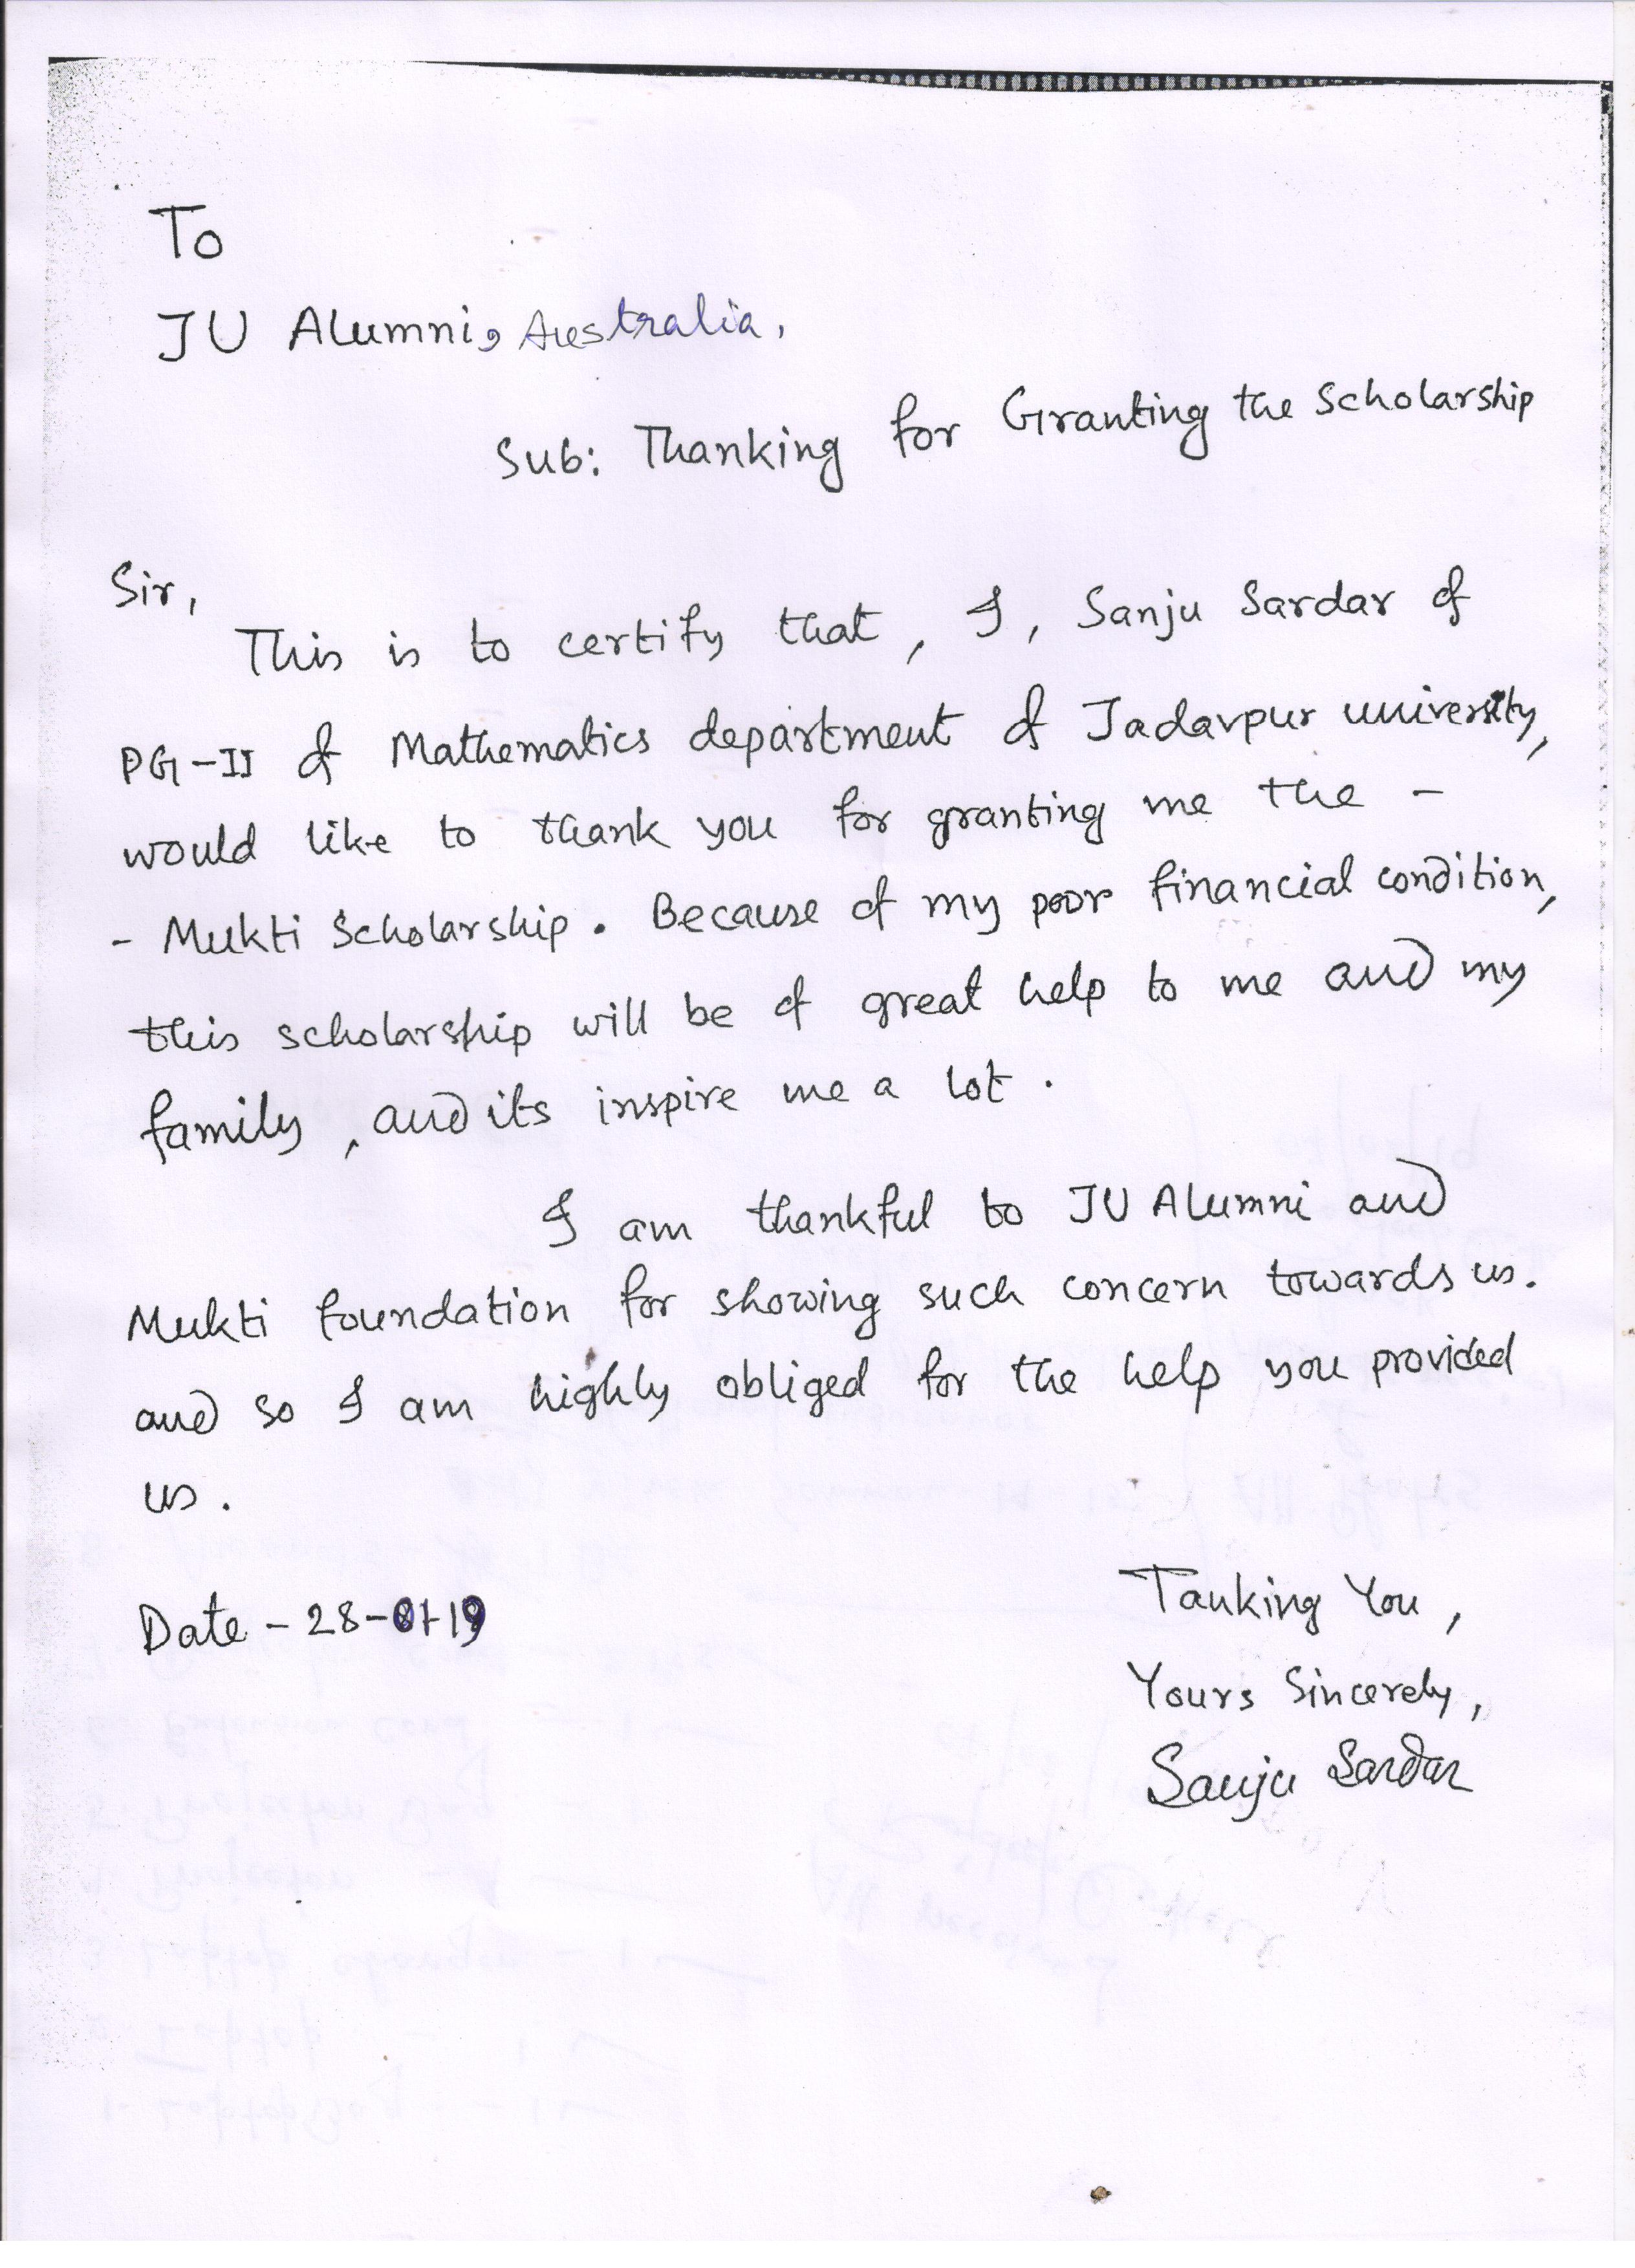 To
JU Alumni, Australia,
Sub: Thanking for Granting the Scholarship
Sir,
This is to certify that, I, Sanju Sardar of
PG-II of Mathematics department of Jadavpur university,
would like to thank you for granting me the -
- Mukti Scholarship. Because of my poor financial condition,
this scholarship will be of great help to me and my
family, and its inspire me a lot.
I am thankful to JU Alumni and
Mukti foundation for showing such concern towards us.
and so I am highly obliged for the help you provided
us.
Date - 28-01-19
Tanking You,
Yours Sincerely,
Sanju Sardar